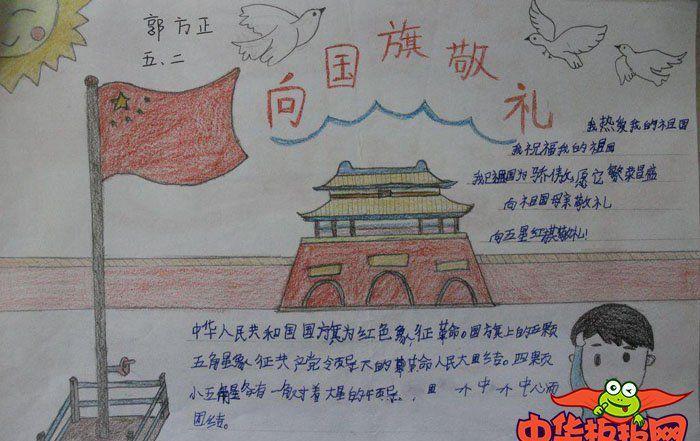 郭方正
五、二
向国旗敬礼
我热爱我的祖国
我祝福我的祖国
我以祖国为骄傲，愿它繁荣昌盛
向祖国母亲敬礼
向五星红旗敬礼！
中华人民共和国国旗为红色象征革命。国旗上的五颗
五角星象征共产党领导下的革命人民大团结。四颗
小五角星各有一
团结。
中华板报网